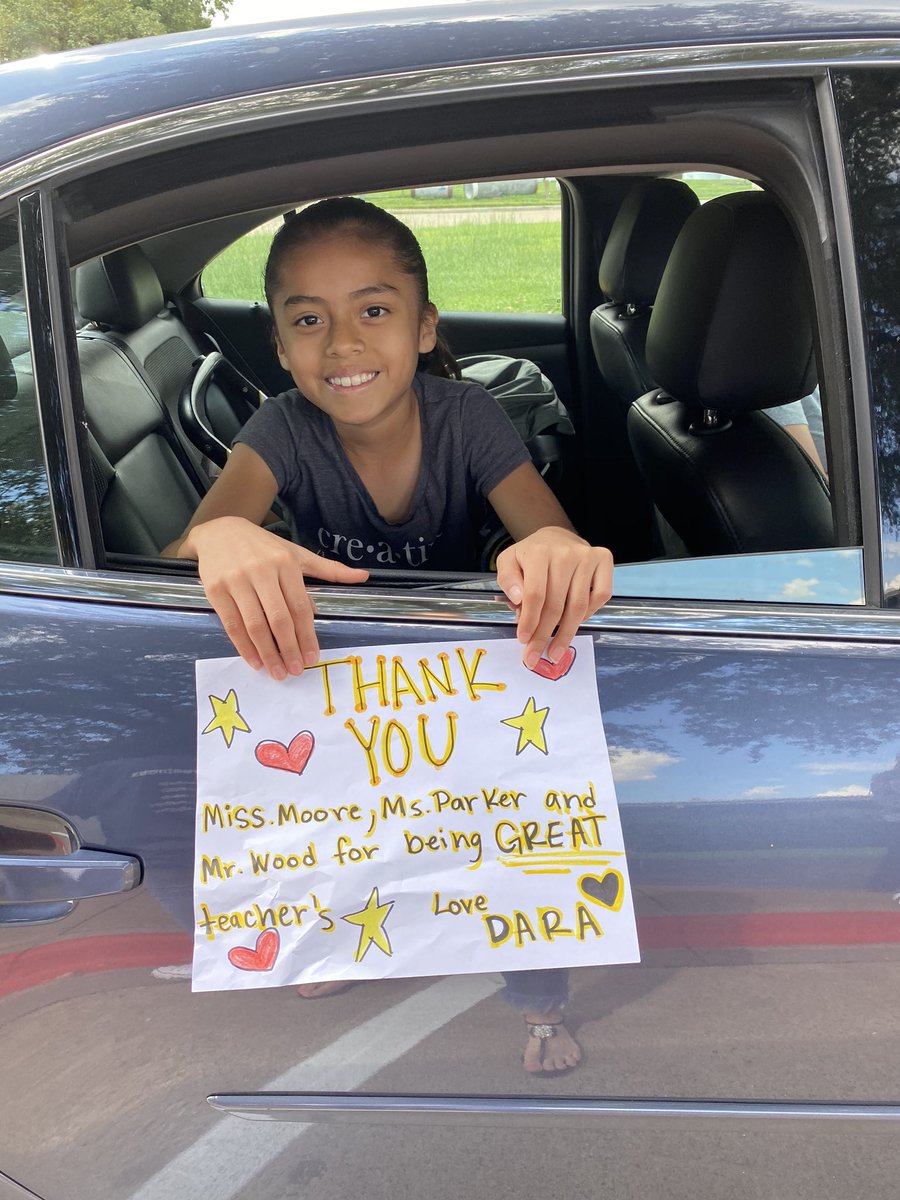 cre•a•ti
THANK
YOU
Miss. Moore, Ms. Parker and
Mr. Wood for being GREAT
teacher's Love
DARA